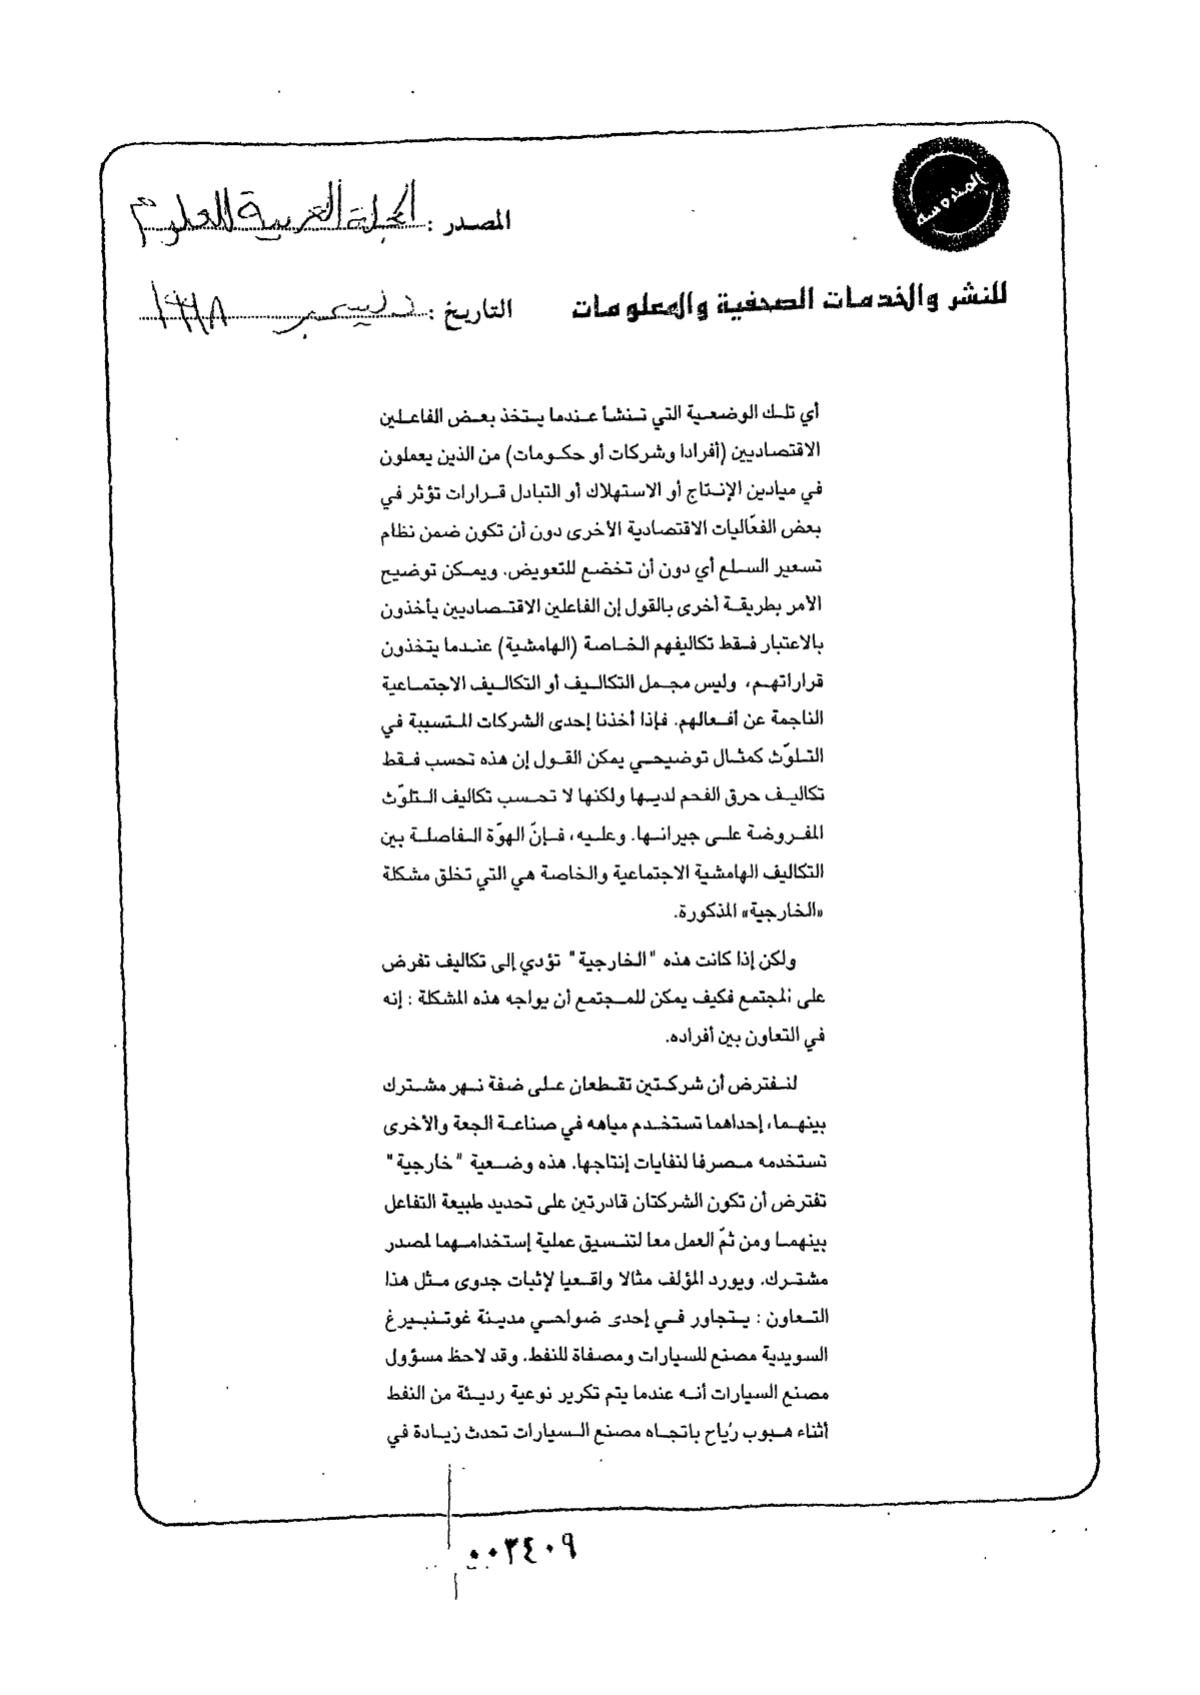 المصدر : المجلة العربية للعلوم
للنشر والخدمات الصحفية والمعلومات
التاريخ : ديسمبر ١٩٩٨
أي تلك الوضعية التي تنشأ عندما يتخذ بعض الفاعلين
الاقتصاديين (أفرادا وشركات أو حكومات) من الذين يعملون
في ميادين الإنتاج أو الاستهلاك أو التبادل قرارات تؤثر في
بعض الفعّاليات الاقتصادية الأخرى دون أن تكون ضمن نظام
تسعير السلع أي دون أن تخضع للتعويض. ويمكن توضيح
الأمر بطريقة أخرى بالقول إن الفاعلين الاقتصاديين يأخذون
بالاعتبار فقط تكاليفهم الخاصة (الهامشية) عندما يتخذون
قراراتهم، وليس مجمل التكاليف أو التكاليف الاجتماعية
الناجمة عن أفعالهم. فإذا أخذنا إحدى الشركات المتسببة في
التلوّث كمثال توضيحي يمكن القول إن هذه تحسب فقط
تكاليف حرق الفحم لديها ولكنها لا تحسب تكاليف التلوّث
المفروضة على جيرانها. وعليه، فإنّ الهوّة الفاصلة بين
التكاليف الهامشية الاجتماعية والخاصة هي التي تخلق مشكلة
«الخارجية» المذكورة.
ولكن إذا كانت هذه "الخارجية" تؤدي إلى تكاليف تفرض
على المجتمع فكيف يمكن للمجتمع أن يواجه هذه المشكلة : إنه
في التعاون بين أفراده.
لنفترض أن شركتين تقطعان على ضفة نهر مشترك
بينهما، إحداهما تستخدم مياهه في صناعة الجعة والأخرى
تستخدمه مصرفا لنفايات إنتاجها. هذه وضعية "خارجية"
تفترض أن تكون الشركتان قادرتين على تحديد طبيعة التفاعل
بينهما ومن ثمّ العمل معا لتنسيق عملية إستخدامهما لمصدر
مشترك. ويورد المؤلف مثالا واقعيا لإثبات جدوى مثل هذا
التعاون : يتجاور في إحدى ضواحي مدينة غوتنبيرغ
السويدية مصنع للسيارات ومصفاة للنفط. وقد لاحظ مسؤول
مصنع السيارات أنه عندما يتم تكرير نوعية رديئة من النفط
أثناء هبوب رياح باتجاه مصنع السيارات تحدث زيادة في
٠٠٣٤٠٩